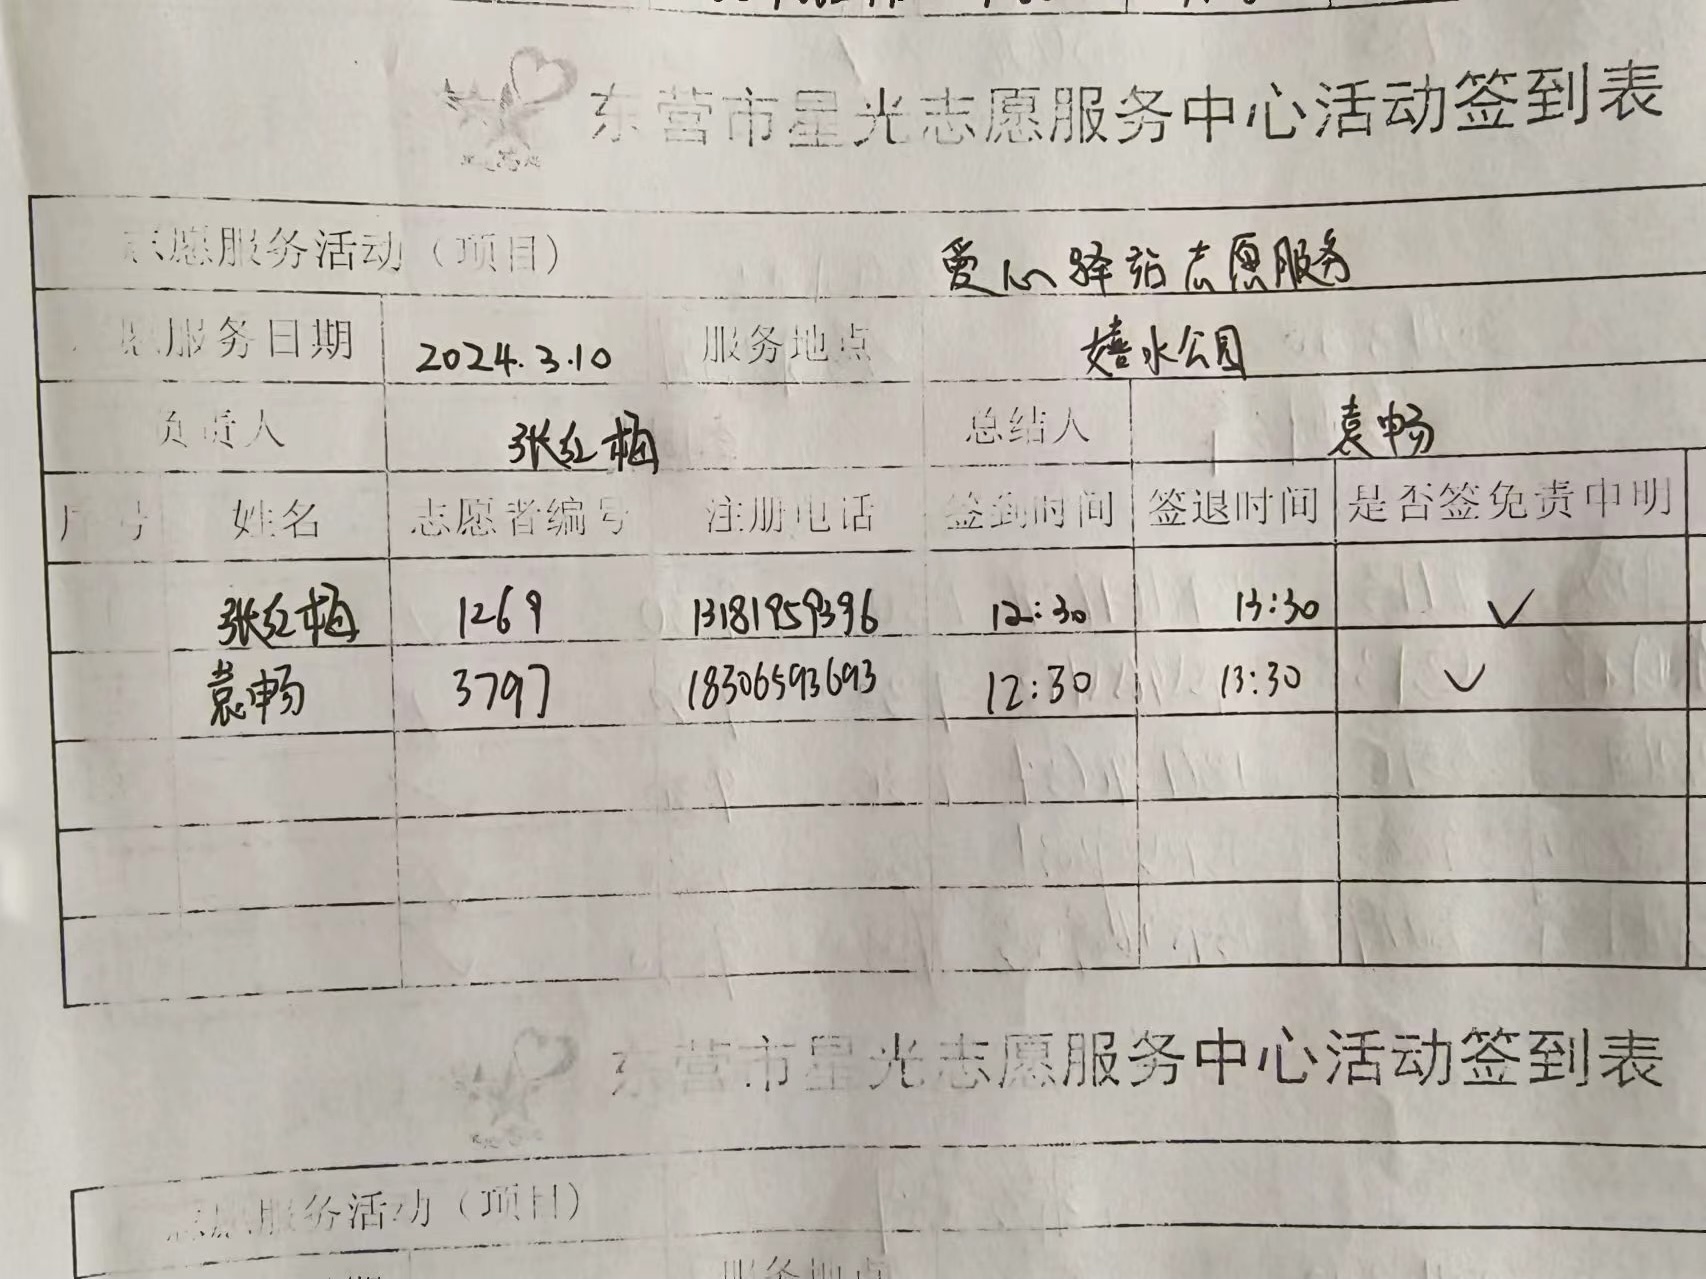 东营市星光志愿服务中心活动签到表
志愿服务活动（项目） 爱心驿站志愿服务
志愿服务日期 2024.3.10 服务地点 嬉水公园
负责人 张红梅 总结人 袁畅
序号 姓名 志愿者编号 注册电话 签到时间 签退时间 是否签免责申明
张红梅 1269 13181959396 12:30 13:30 ✓
袁畅 3797 18306593693 12:30 13:30 ✓
东营市星光志愿服务中心活动签到表
志愿服务活动（项目）
服务地点